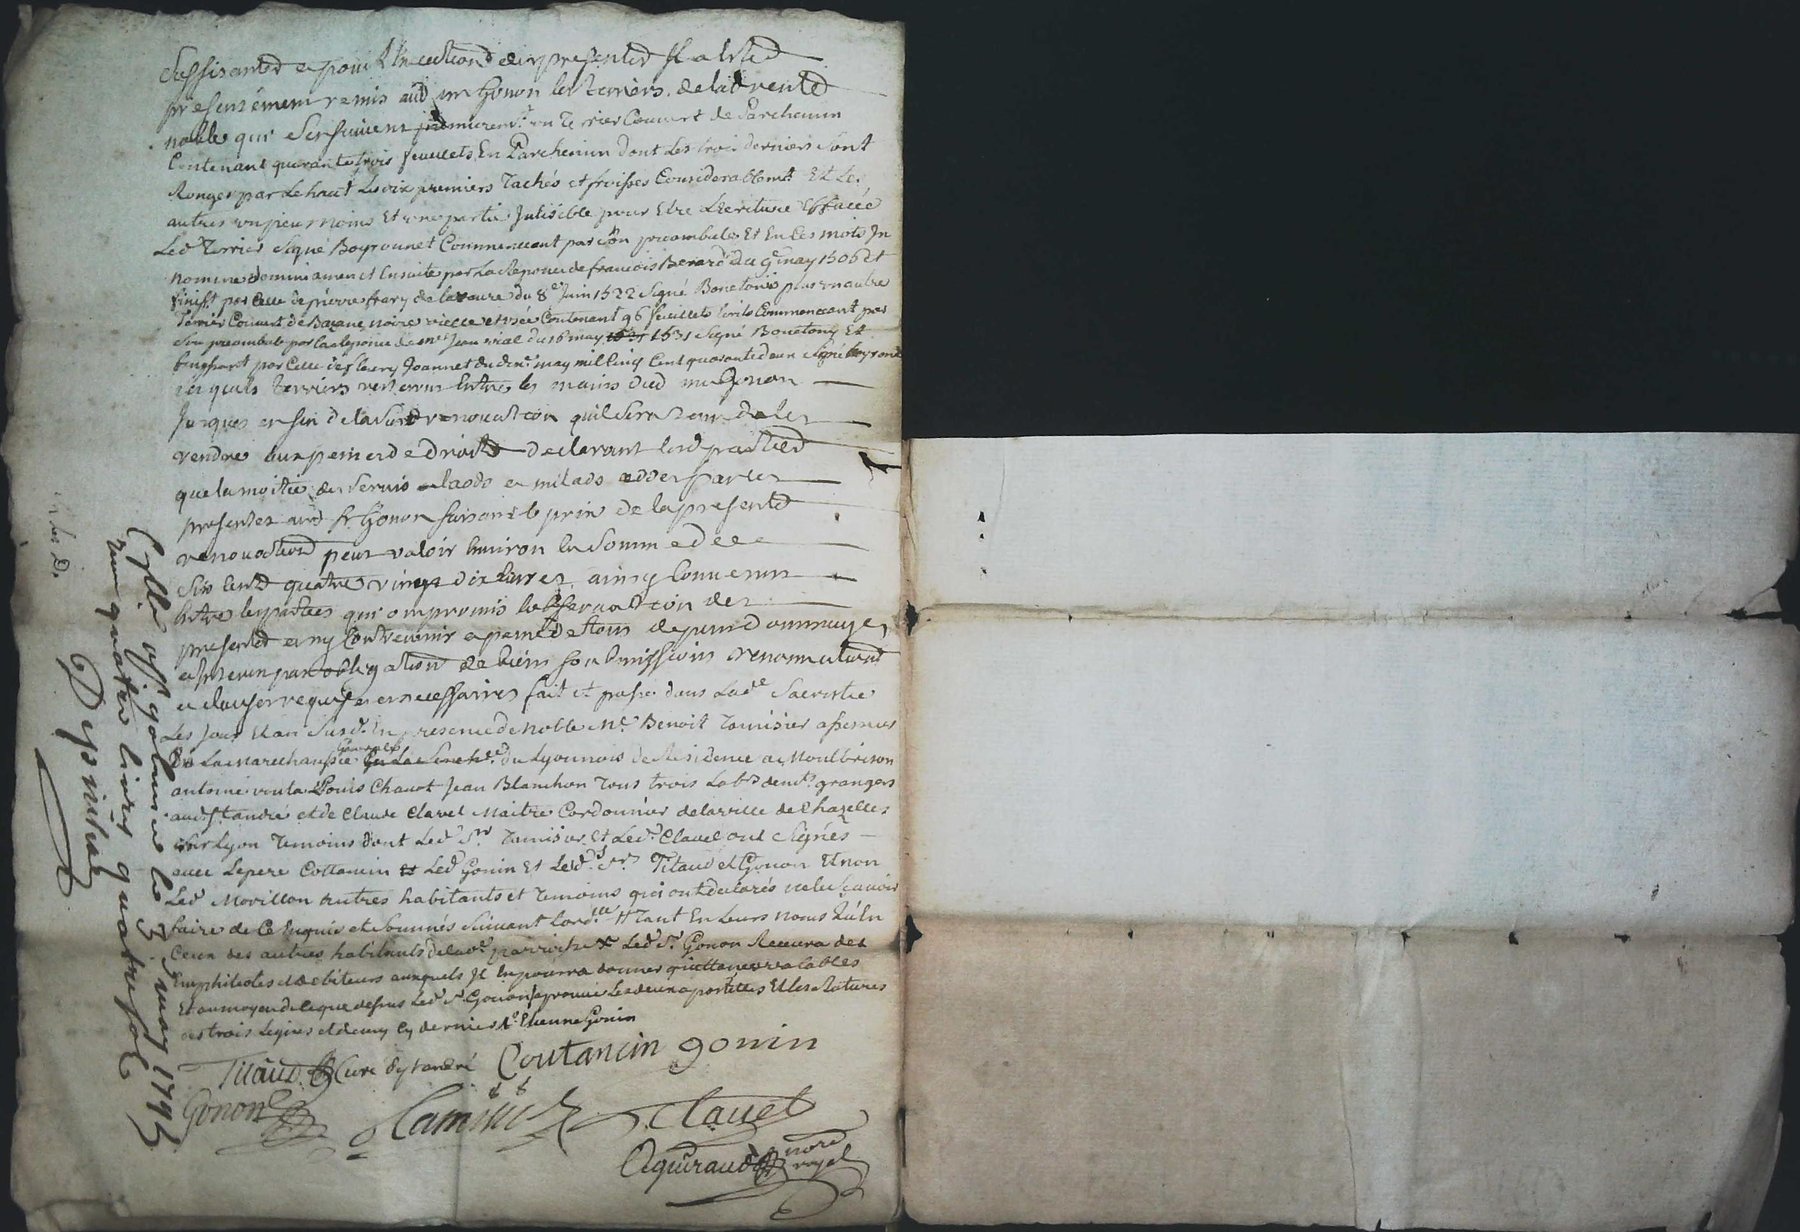 suffisantes et pour l'execution des presentes il a esté
presentement remis aud. mr Gonon les terriers de lad. rente
noble qui s'ensuivent premierem.t un Terrier Couvert de Parchemin
Contenant quarante trois feuillets En Parchemin dont Les trois derniers sont
Rongés par Le haut Les dix premiers Tachés et froissés Considerablem.t Et Les
autres un peu moins Et une partie Inlisible pour Etre L'Ecriture Effacée
Led. Terrier signé Boyronnet Commencant par son preambule Et En Ces mots In
nomine domini amen et Ensuite par La Reponce de francois Berard du 9.e may 1506 et
finiss.t par Celle de pierre frary de du 8.e Juin 1522 Signé Bonetons plus un autre
Terrier Couvert de Bazane noire vielle et usée Contenant 96 feuillets Ecrits Commencant par
son preambule par la reponce de me Jean vial du 16 may 1531 Signé Bonetony Et
finissant par Celle de fleury Joannet du may mil Cinq Cent quarante deux Signé boyron
lesquels terriers resteront Entre les mains dud. mr Gonon
Jusques en fin de lad. renovation qu'il sera tenu de les
rendre aux peines de droit declarant lesd. parties
que la moitié des servis laods et milaods
presentes aud. sr Gonon faisant le prix de la presente
renovation peut valoir Environ la somme de
six cent quatre vingt dix livres ainsy Convenu
Entre les parties qui ont promis l'observation des
presentes et ny Contrevenir a peine de tous depens dommages
et interets par obligation de biens soubmissions renonciations
et clauses requises et necessaires fait et passé dans Lad.e Sacristie
Les Jour Et an Susd. En presence de noble Me. Benoit Tamisier assesseur
En La marechaussée Generale du Lyonnois de Residence a Montbrison
antoine viula Louis Chavot Jean Blanchon Tous trois Lab.rs grangers
aud. St andré et de Claude Clavel Maitre Cordonnier de la ville de Chazelles
sur Lyon Temoins dont Led. Sr. Tamisier Et Led. Clavel ont Signés
avec Le pere Cottancin Led. Gonin Et Lesd. Srs. Titaud et Gonon Et non
Led. Morillon autres habitants et Temoins qui ont declarés ne le scavoir
faire de Ce Enquis et Sommés Suivant l'ord.ce Tant En Leurs noms qu'En
Ceux des autres habitants de lad. parroisse Led. Sr. Gonon Recevra des
Emphiteotes et debiteurs auxquels Il En pourra donner quittances valables
Et au moyen de Ce que dessus Led. Sr Gonon approuvé Les deux apostilles Et Les Ratures
es trois Lignes et demy Cy dernier Etienne Gonin
Titaud Curé dy st andré Coutancin gonin
Gonon Tamisier Clavel
Aguiraud nore royal
Collé a st galmier le 3 may 1743
reçu quatre livres quatre sols